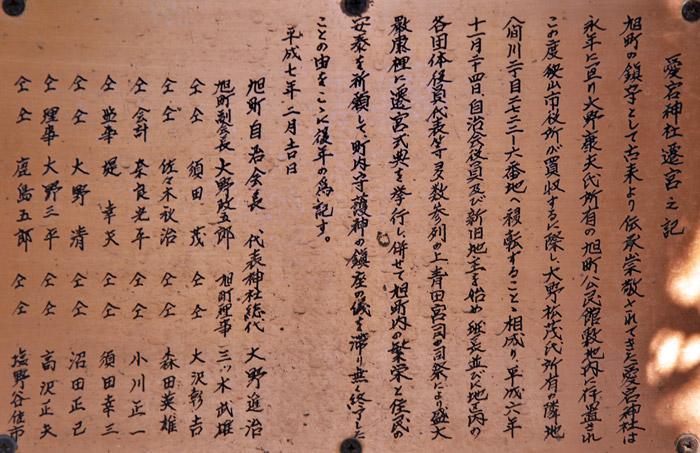 愛宕神社遷宮之記
旭町の鎮守として古来より伝承崇敬されてきた愛宕神社は
永年に亘り大野康夫氏所有の旭町公民館敷地内に存置され
この度狭山市役所が買収するに際し大野松茂氏所有の隣地
入間川二丁目二七二三ー六番地へ移転することゝ相成り、平成六年
十一月二十四日、自治会役員及び新旧地主を始め班長並びに地区内の
各団体役員代表等多数参列の上青田宮司の司祭により盛大
厳粛裡に遷宮式典を挙行し、併せて旭町内の繁栄と住民の
安泰を祈願して、町内守護神の鎮座の儀を滞り無く終了した
ことの由をここに後年の為記す。
平成七年二月吉日
旭町自治会長 代表神社総代 大野進治
旭町副会長 大野政五郎 旭町理事 三ツ木武雄
仝 仝 須田茂 仝 仝 大沢彰吉
仝 仝 佐々木秋治 仝 仝 森田英雄
仝 会計 奈良光平 仝 仝 小川正一
仝 監事 堤幸矢 仝 仝 須田幸三
仝 仝 大野清 仝 仝 沼田正己
仝 理事 大野三平 仝 仝 高沢正夫
仝 仝 鹿島五郎 仝 仝 塩野谷佳市